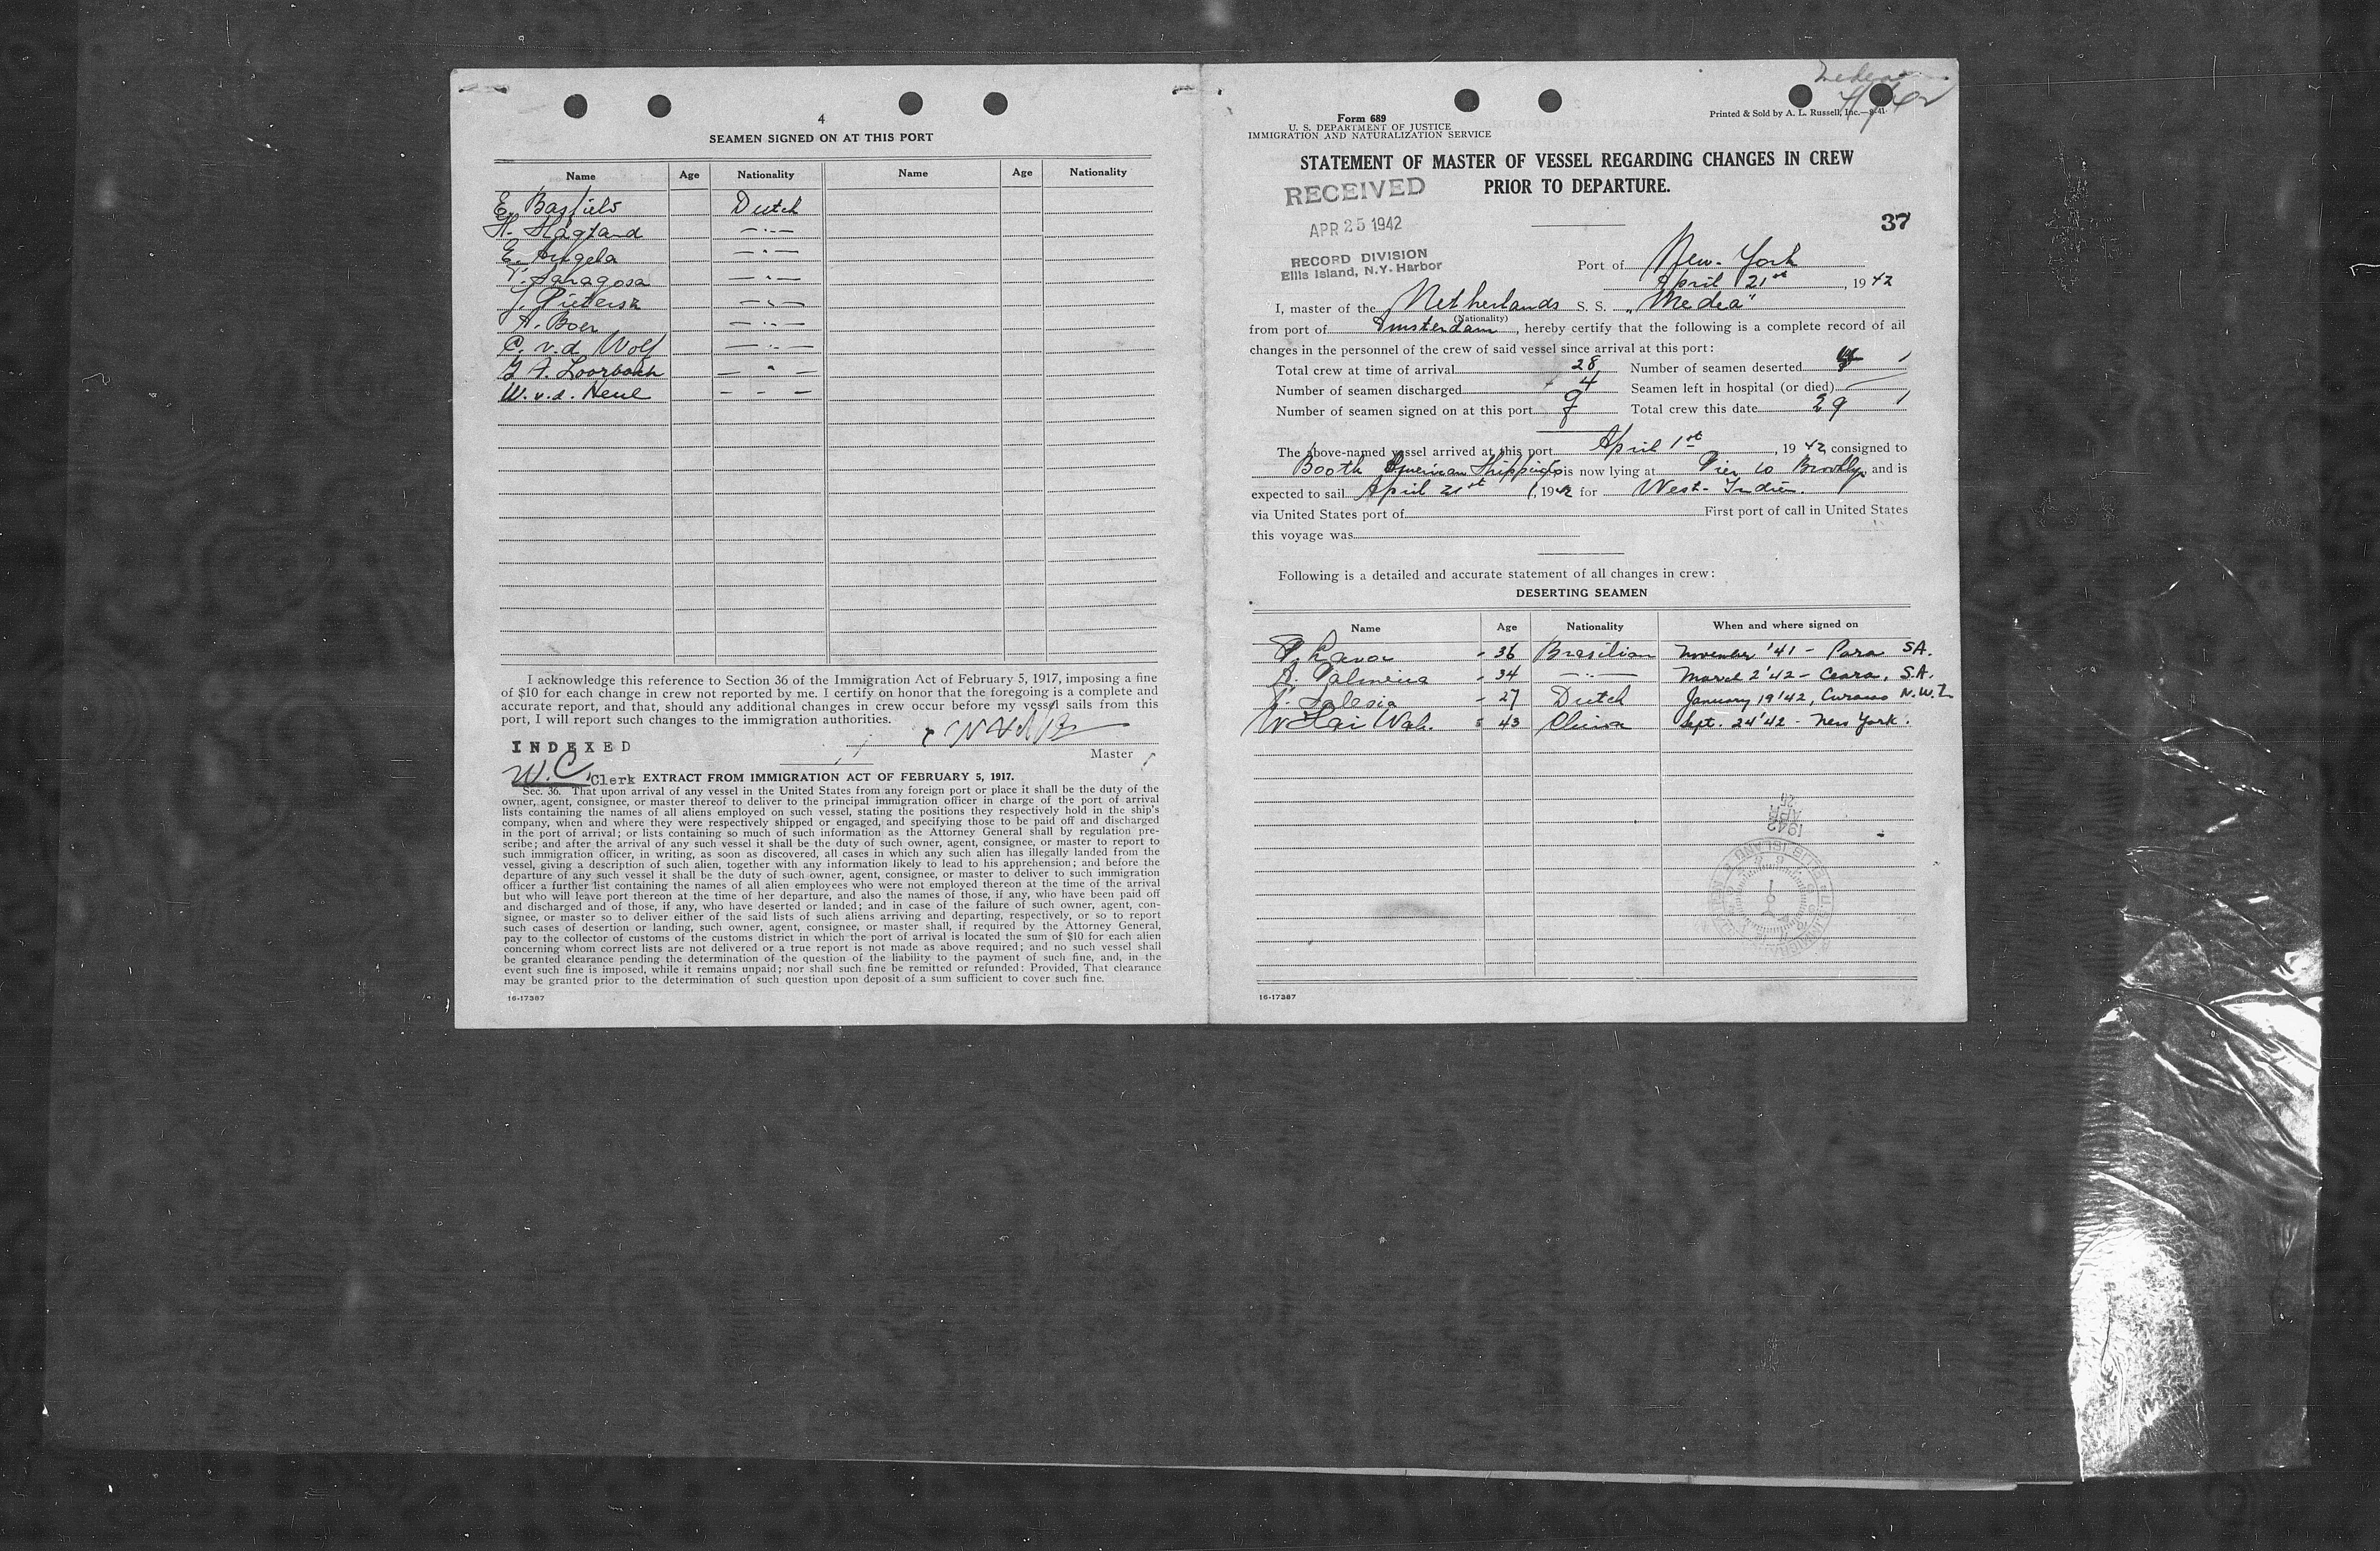 4
SEAMEN SIGNED ON AT THIS PORT
Name Age Nationality Name Age Nationality
E. Basfield Dutch
H. Hagtand — · —
E. Angela — · —
Saragosa — · —
J. Pietersz — · —
A. Boer — · —
C. v.d. Wolf — · —
Loorbach — · —
W. v.d. Heul — - —
I acknowledge this reference to Section 36 of the Immigration Act of February 5, 1917, imposing a fine
of $10 for each change in crew not reported by me. I certify on honor that the foregoing is a complete and
accurate report, and that, should any additional changes in crew occur before my vessel sails from this
port, I will report such changes to the immigration authorities.
INDEXED
Master
W.C. Clerk EXTRACT FROM IMMIGRATION ACT OF FEBRUARY 5, 1917.
Sec. 36. That upon arrival of any vessel in the United States from any foreign port or place it shall be the duty of the
owner, agent, consignee, or master thereof to deliver to the principal immigration officer in charge of the port of arrival
lists containing the names of all aliens employed on such vessel, stating the positions they respectively hold in the ship's
company, when and where they were respectively shipped or engaged, and specifying those to be paid off and discharged
in the port of arrival; or lists containing so much of such information as the Attorney General shall by regulation pre-
scribe; and after the arrival of any such vessel it shall be the duty of such owner, agent, consignee, or master to report to
such immigration officer, in writing, as soon as discovered, all cases in which any such alien has illegally landed from the
vessel, giving a description of such alien, together with any information likely to lead to his apprehension; and before the
departure of any such vessel it shall be the duty of such owner, agent, consignee, or master to deliver to such immigration
officer a further list containing the names of all alien employees who were not employed thereon at the time of the arrival
but who will leave port thereon at the time of her departure, and also the names of those, if any, who have been paid off
and discharged and of those, if any, who have deserted or landed; and in case of the failure of such owner, agent, con-
signee, or master so to deliver either of the said lists of such aliens arriving and departing, respectively, or so to report
such cases of desertion or landing, such owner, agent, consignee, or master shall, if required by the Attorney General,
pay to the collector of customs of the customs district in which the port of arrival is located the sum of $10 for each alien
concerning whom correct lists are not delivered or a true report is not made as above required; and no such vessel shall
be granted clearance pending the determination of the question of the liability to the payment of such fine, and, in the
event such fine is imposed, while it remains unpaid; nor shall such fine be remitted or refunded: Provided, That clearance
may be granted prior to the determination of such question upon deposit of a sum sufficient to cover such fine.
16-17387
Medea
Form 689
U. S. DEPARTMENT OF JUSTICE
IMMIGRATION AND NATURALIZATION SERVICE
Printed & Sold by A. L. Russell, Inc.—
STATEMENT OF MASTER OF VESSEL REGARDING CHANGES IN CREW
PRIOR TO DEPARTURE.
RECEIVED
APR 25 1942
RECORD DIVISION
Ellis Island, N.Y. Harbor
37
Port of New-York
April 21st, 1942
I, master of the Netherlands S. S. „Medea"
(Nationality)
from port of Amsterdam, hereby certify that the following is a complete record of all
changes in the personnel of the crew of said vessel since arrival at this port:
Total crew at time of arrival 28 Number of seamen deserted
Number of seamen discharged 4 Seamen left in hospital (or died)
Number of seamen signed on at this port 9 Total crew this date 29
The above-named vessel arrived at this port April 1st, 1942, consigned to
Booth American Shipping Co is now lying at Pier 10 Brooklyn and is
expected to sail April 21st, 1942 for West-Indies.
via United States port of First port of call in United States
this voyage was
Following is a detailed and accurate statement of all changes in crew:
DESERTING SEAMEN
Name Age Nationality When and where signed on
36 Brasilian November '41 - Para SA.
A. Palmeira - 34 — · — March 2 '42 - Ceara, S.A.
Salesia - 27 Dutch January 19 '42, Curacao N.W.I.
Hai Wah. 43 China Sept. 24 '42 - New York.
1942
APR
25
16-17387